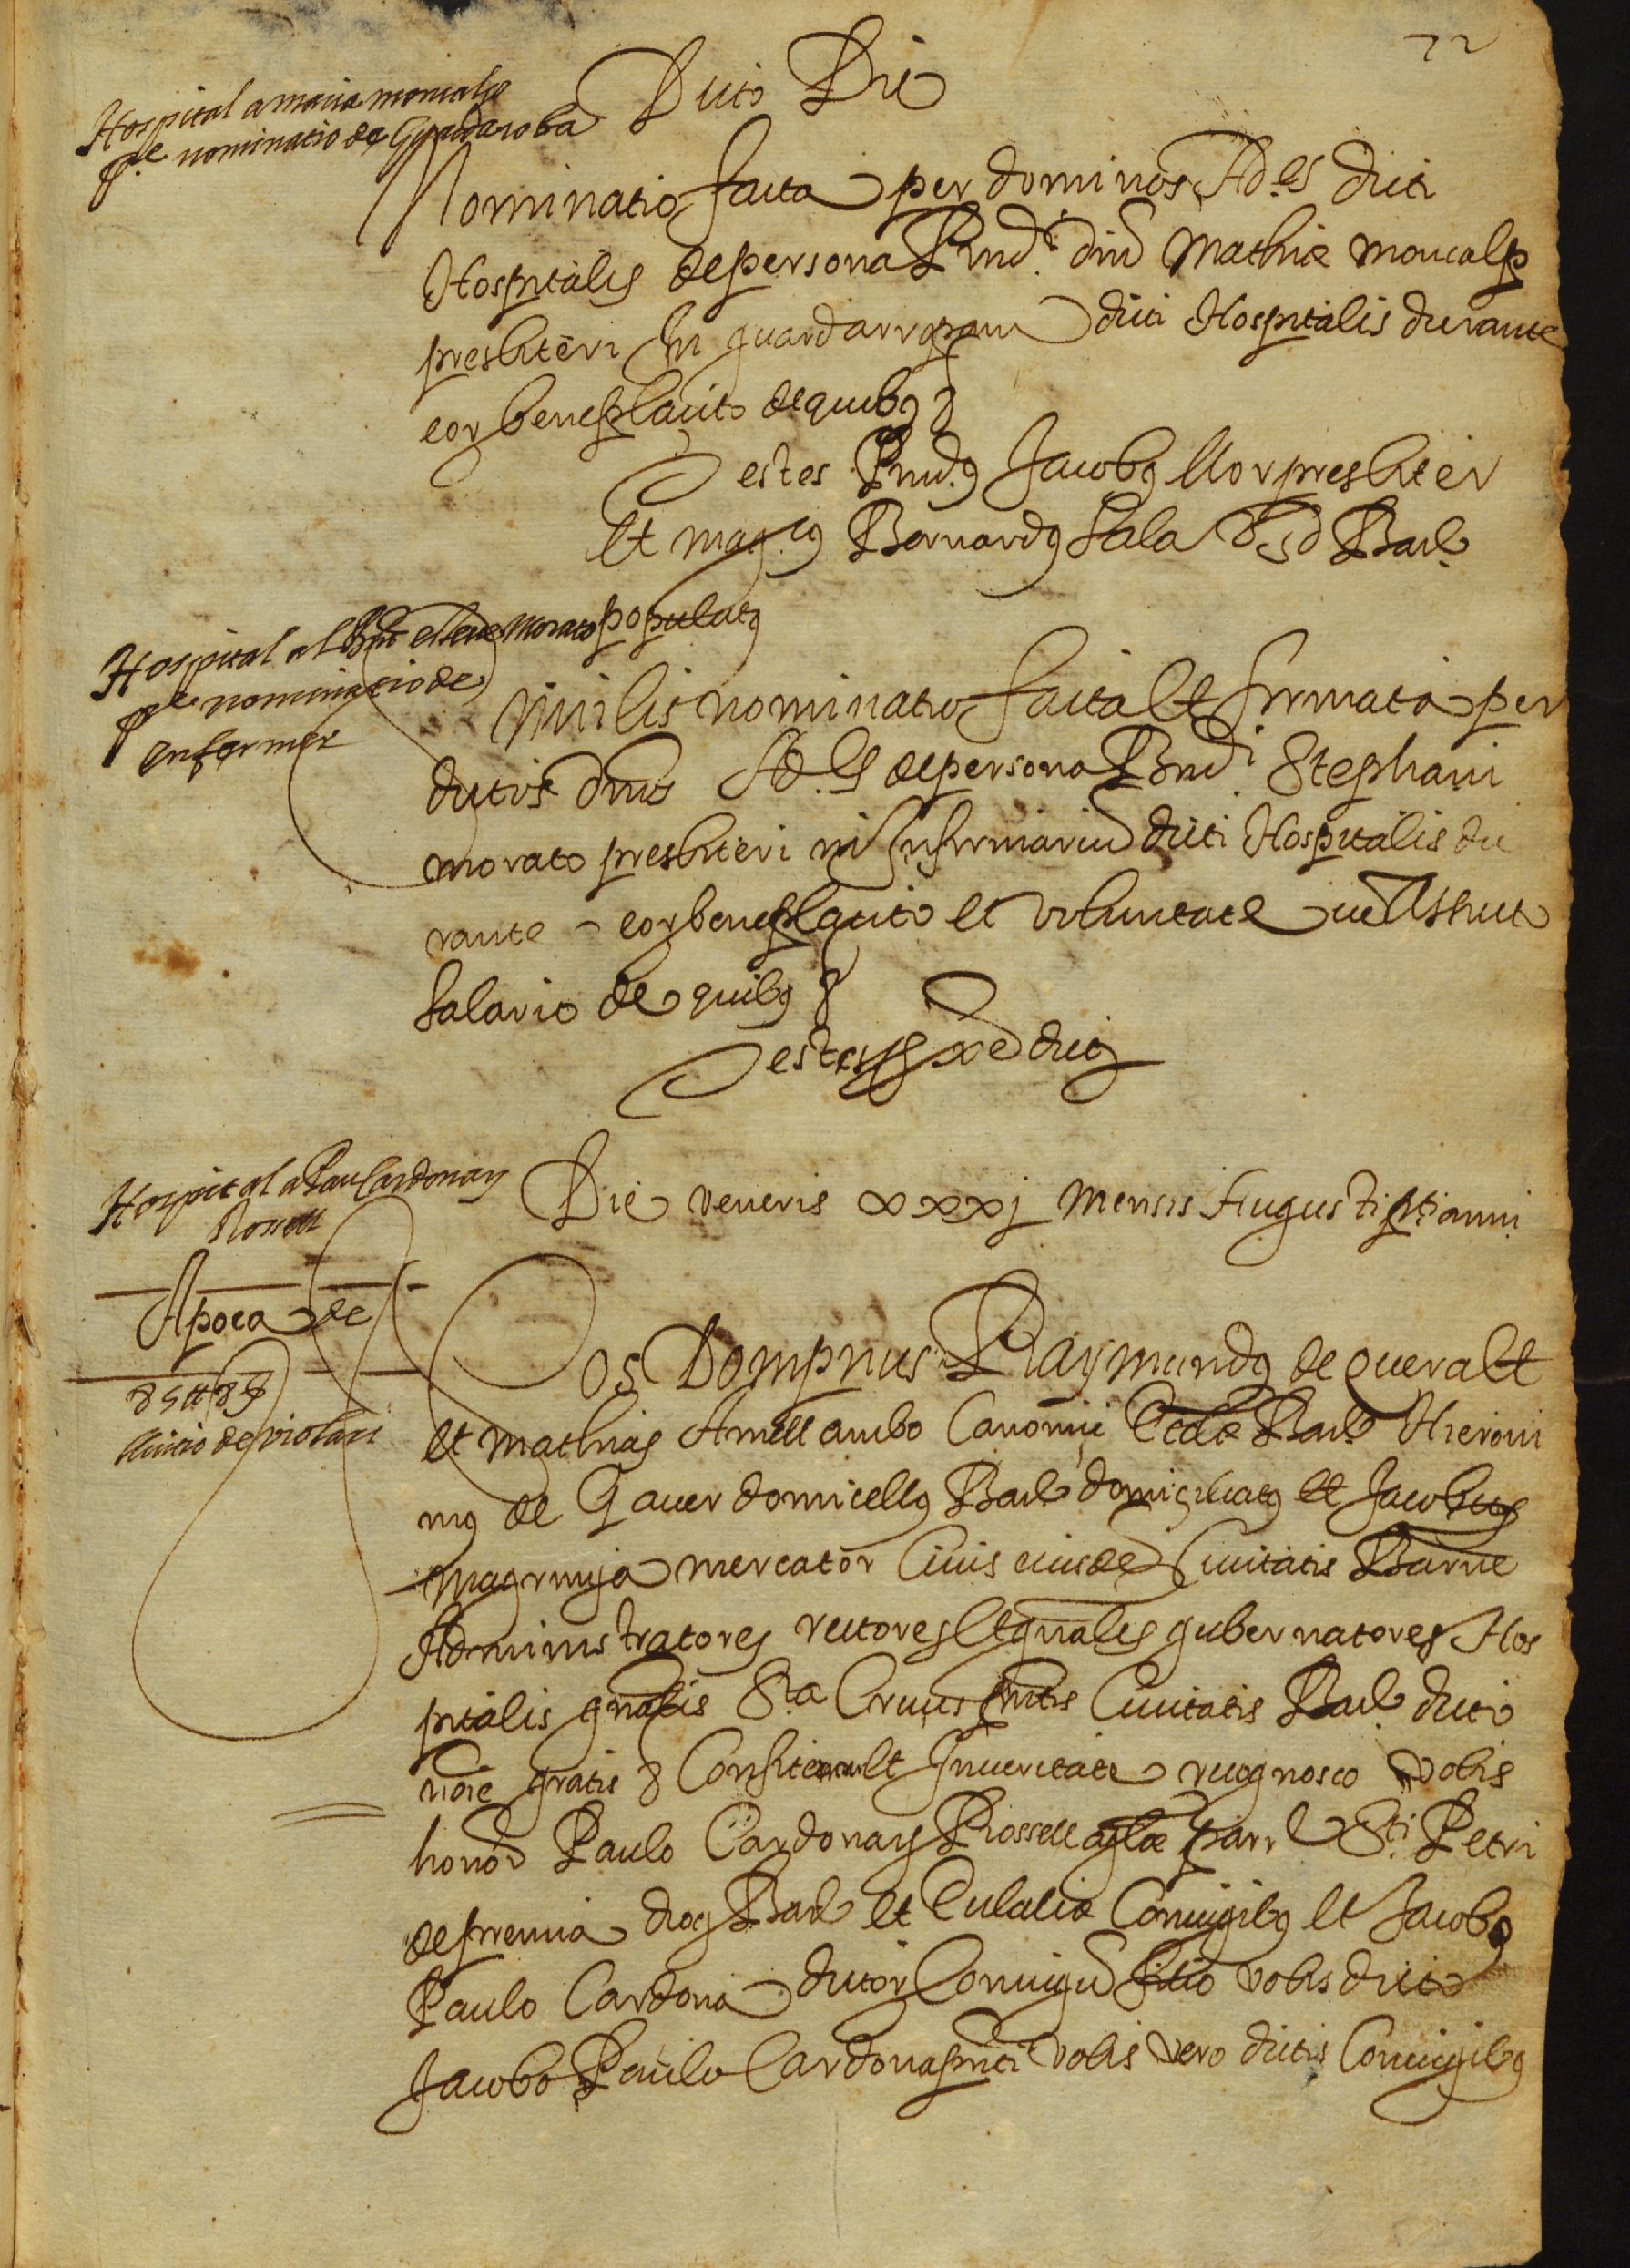 72
Hospital a maria moncalp
p.e nominatio de Guardaroba
Dicto Die
Nominatio facta per dominos Ad.es dicti
Hospitalis de persona Rnd.i dni Mathiæ moncalp
presbiteri in guardarropam dicti Hospitalis durante
eor beneplacito de quibus &
Testes Rnd.9 Jacob9 llor presbiter
et mag.c9 Bernard9 Sala Bar.
Hospital al Rnt esteve Morato populat9
p.e nominatio de
enfermer
Similis nominatio facta et firmata per
dictos dnos Ad.es de persona Rnd.i Stephani
morato presbiteri in Infirmariu dicti Hospitalis du
rante eor beneplacito et voluntate
salario de quibus &
Testes qui supra dicti
Hospital a Pau Cardonay
Rossell
Apoca de
85 ₶ 8 s
lluicio de violari
Die veneris xxxj mensis Augusti pti anni
Nos Dompnus Raymund9 de queralt
et mathias Amell ambo Canonici Eccle Bar. Hieroni
m9 de Gauer domicell9 Bar. domiciliat9 et Jacobus
magrinya mercator Ciuis eiusde Ciuitatis Barne
Administratores rectores et gnales gubernatores Hos
pitalis gnalis Sta Crucis pntis Ciuitatis Bar. dicto
noie gratis & Confitemur et In veritate recognosco vobis
honor. Paulo Cardonay Rossell aglæ parr. Sti Petri
de premia dioc Bar. et Eulaliæ Coniugib9 et Jacobo
Paulo Cardona dictor Coniugu filio vobis dicto
Jacobo Paulo Cardona pnti vobis vero dictis Coniugib9